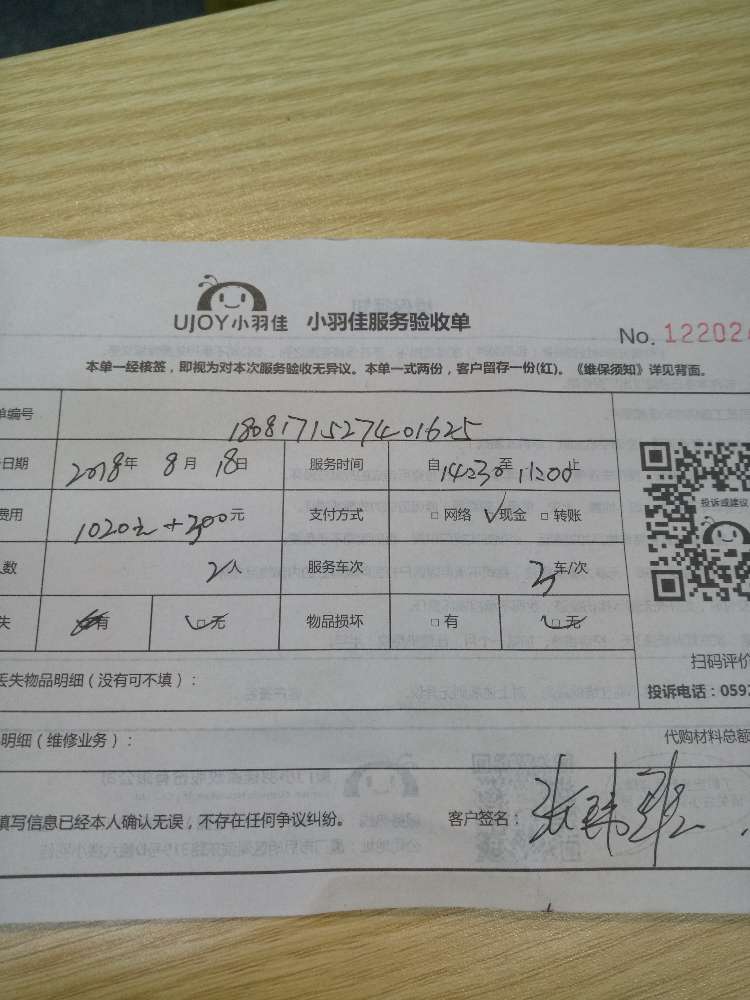 UJOY小羽佳 小羽佳服务验收单
No. 12202
本单一经核签，即视为对本次服务验收无异议。本单一式两份，客户留存一份(红)。《维保须知》详见背面。
单编号 1808171527401625
日期 2018年 8月 18日 服务时间 自14:30至 止
费用 1020元+300元 支付方式 □网络 ✓现金 □转账
人数 2人 服务车次 车/次
失 有 □无 物品损坏 □有 □无
投诉或建议
扫码评价
丢失物品明细（没有可不填）： 投诉电话：059
明细（维修业务）： 代购材料总额
填写信息已经本人确认无误，不存在任何争议纠纷。 客户签名：